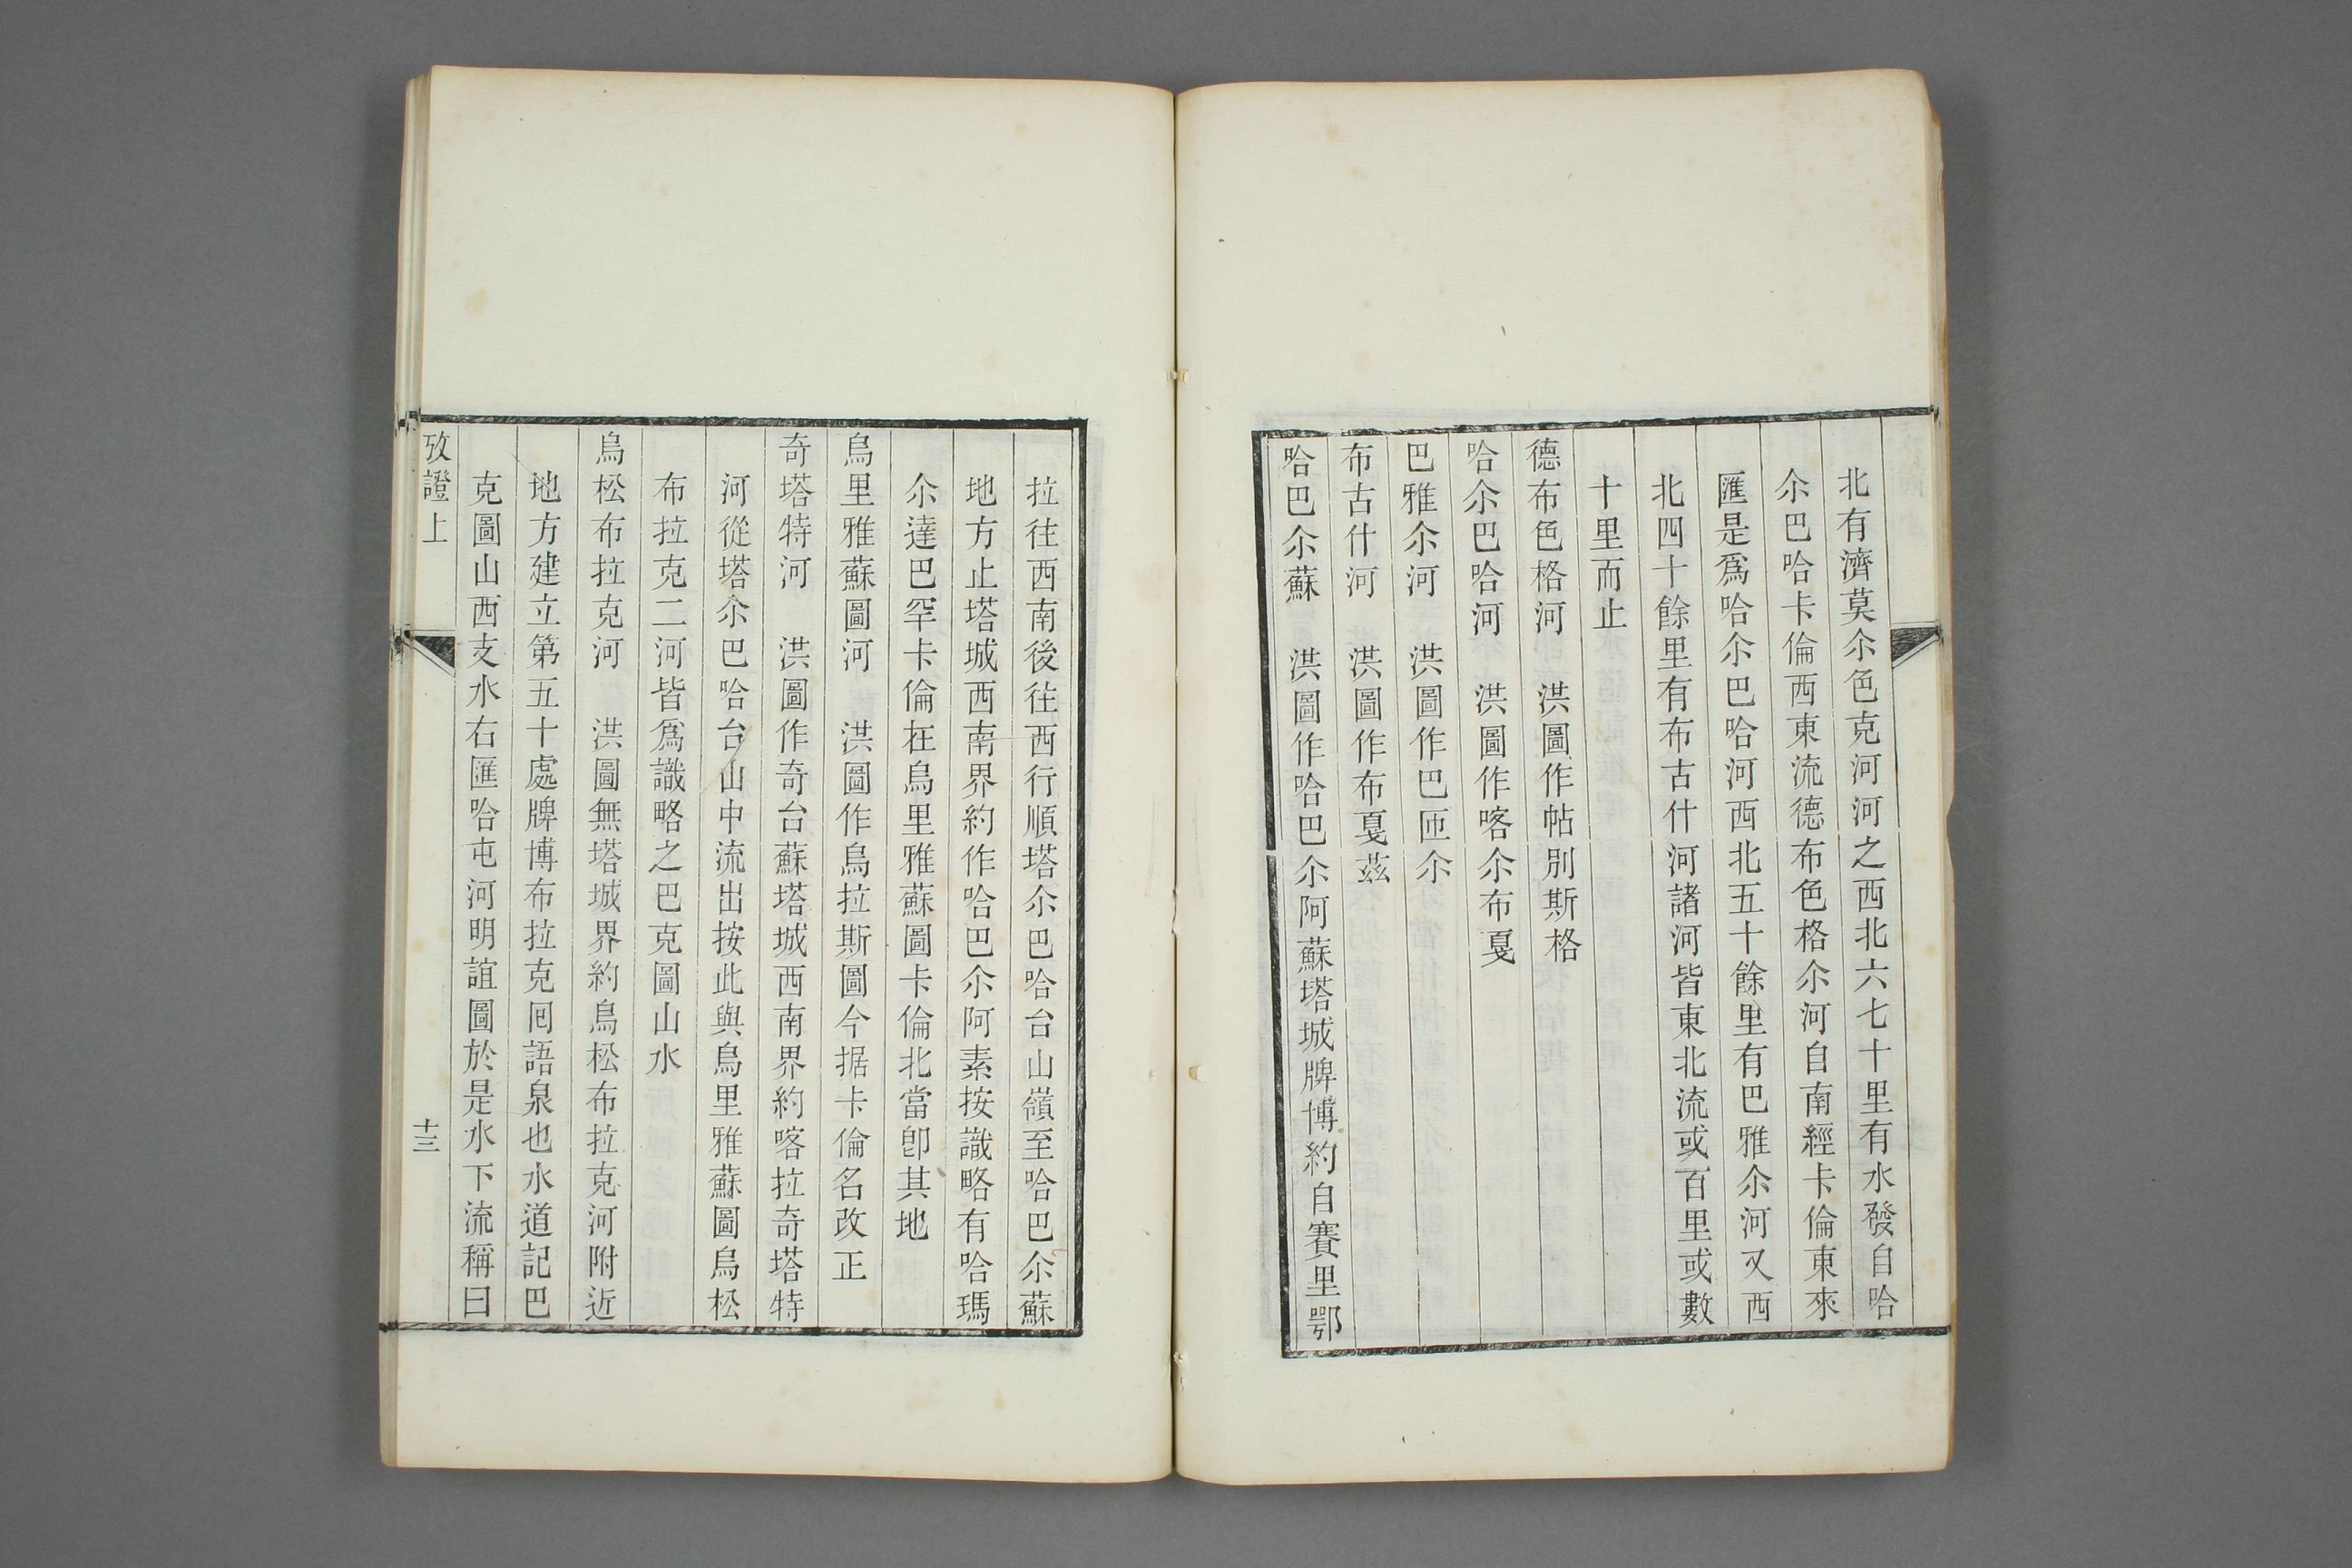 北有濟莫尒色克河河之西北六七十里有水發自哈
尒巴哈卡倫西東流德布色格尒河自南經卡倫東來
匯是爲哈尒巴哈河西北五十餘里有巴雅尒河又西
北四十餘里有布古什河諸河皆東北流或百里或數
十里而止
德布色格河　洪圖作帖別斯格
哈尒巴哈河　洪圖作喀尒布戛
巴雅尒河　洪圖作巴匝尒
布古什河　洪圖作布戛茲
哈巴尒蘇　洪圖作哈巴尒阿蘇塔城牌博約自賽里鄂
拉往西南後往西行順塔尒巴哈台山嶺至哈巴尒蘇
地方止塔城西南界約作哈巴尒阿素按識略有哈瑪
尒達巴罕卡倫在烏里雅蘇圖卡倫北當卽其地
烏里雅蘇圖河　洪圖作烏拉斯圖今据卡倫名改正
奇塔特河　洪圖作奇台蘇塔城西南界約喀拉奇塔特
河從塔尒巴哈台山中流出按此與烏里雅蘇圖烏松
布拉克二河皆爲識略之巴克圖山水
烏松布拉克河　洪圖無塔城界約烏松布拉克河附近
地方建立第五十處牌博布拉克囘語泉也水道記巴
克圖山西支水右匯哈屯河明誼圖於是水下流稱曰
攷證上
十三